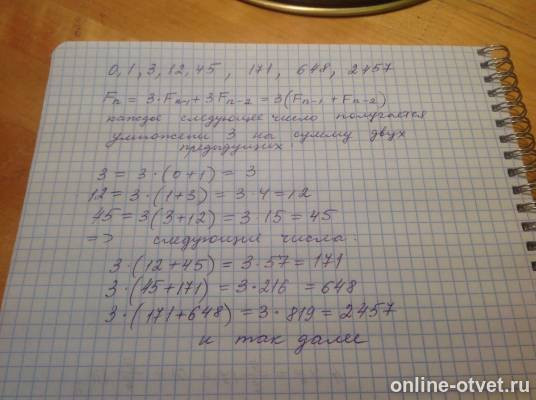 0, 1, 3, 12, 45, 171, 648, 2457
Fn = 3·Fn-1 + 3Fn-2 = 3(Fn-1 + Fn-2)
каждое следующее число получается
умножени 3 на сумму двух
предыдущих.
3 = 3·(0+1) = 3
12 = 3·(1+3) = 3·4 = 12
45 = 3(3+12) = 3·15 = 45
=> следующие числа:
3·(12+45) = 3·57 = 171
3·(45+171) = 3·216 = 648
3·(171+648) = 3·819 = 2457
и так далее
online-otvet.ru